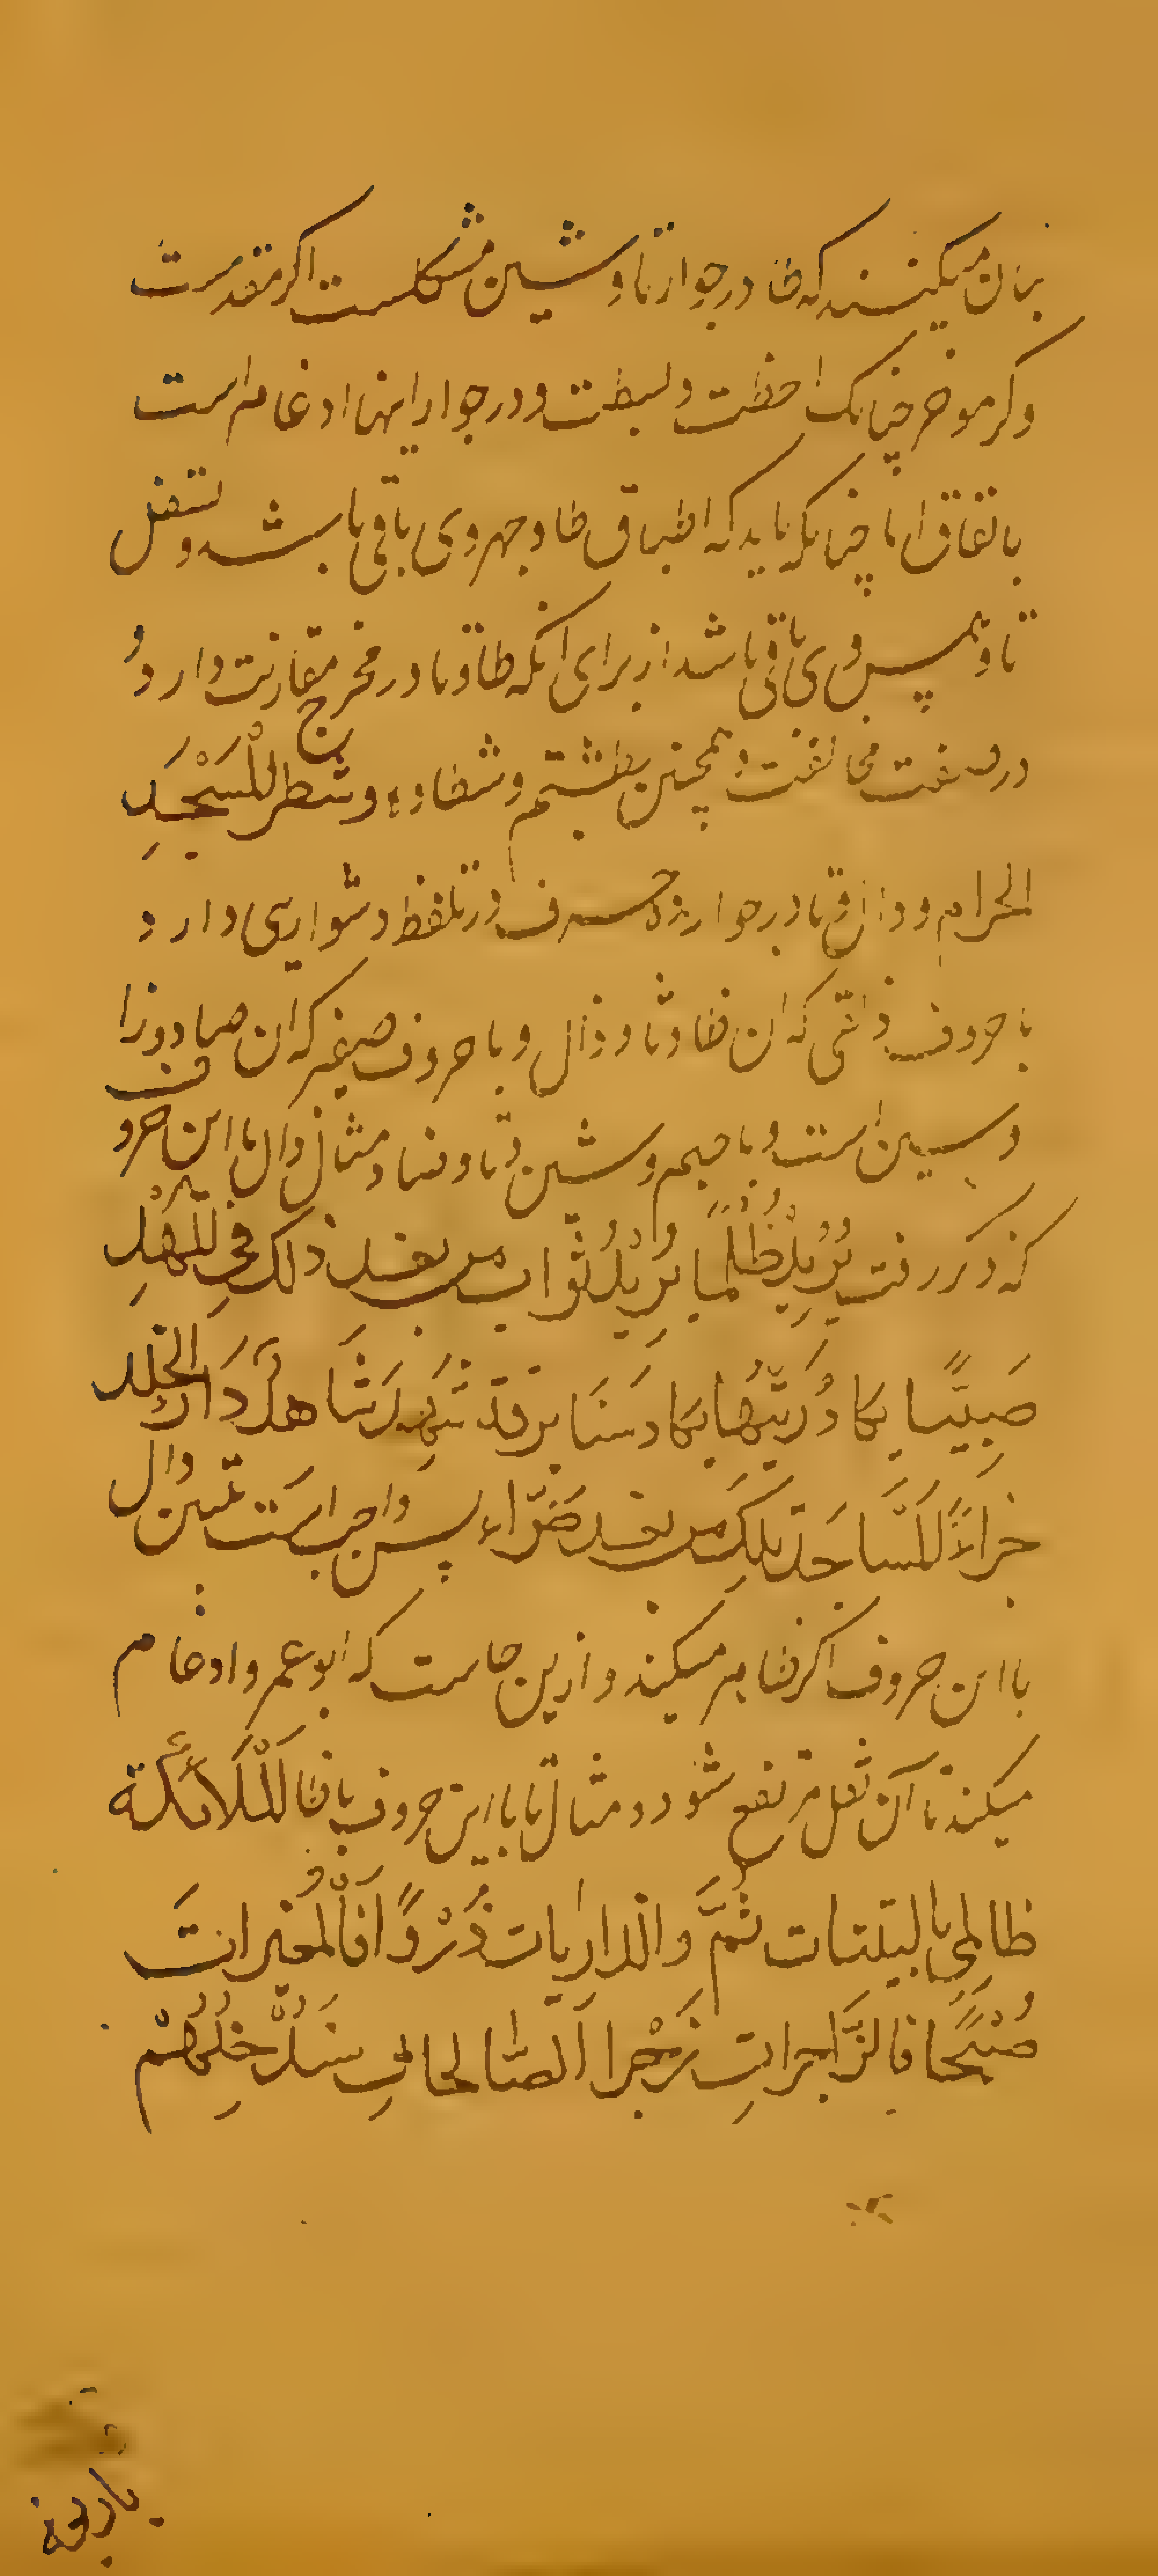 بیان میکنند که طا در جوار تا و شین مشکلست اکر مقدمست
وکر موخر چنانک احطت و بسطت و در جوار اینها ادغام است
باتفاق اما چنانکه باید که اطباق طا و جهر وی باقی باشد و تسفل
تا و همس وی باقی باشد از برای انکه طا و تا در مخرج مقارنت دارد و
در صفت مخالفت و همچنین بطشتم و شطاه و شطر المسجد
الحرام و دال و تا در جوار ده حرف در تلفظ دشواری دارد
با حروف ذلقی که ان ظا و ثا و ذال و با حروف صفیر که ان صاد و زا
و سین است و با جیم و شین و تا و ضاد مثال دال با این حروف
که ذکر رفت یُرِیدُ ظُلْمًا یُرِیْدُ ثَوَاب من بعد ذلک فی المَهْدِ
صَبِیًّا یکاد زَیْتُهَا یکاد سَنَا برقه شَهِدَ شَاهدٌ دَارُ الخلد
جزاءً لَمَسَاجد تِلکَ من بعد ضَرّاء پس واجب است تبیین دال
با این حروف اکر نه میکند و ازین جاست که ابو عمرو ادغام
میکند تا آن ثقل مرتفع شود و مثال تا با این حروف با ظا اَلْمَلَائکة
ظالمِی بالبیّنات ثُمَّ والذاریات ذَرْوًا فَالْمُغیرات
صُبْحًا فالزَّاجراتِ زَجْرا الصّالحاتِ سَنُدْخِلُهُمْ